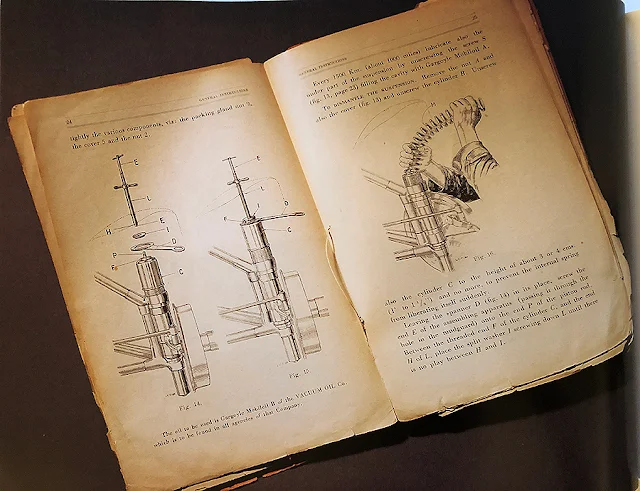 24
GENERAL INSTRUCTIONS
tightly the various components, viz: the packing gland nut
the cover 5 and the nut 2.
E
L
H
E
D
P
F
C
E
L
D
C
Fig. 14.
Fig. 15.
The oil to be used is Gargoyle Mobiloil B of the VACUUM OIL Co.
which is to be found in all agencies of that Company.
GENERAL INSTRUCTIONS
Every 1500 Km. (about 1000 miles) lubricate also the
under part of the suspension by unscrewing the screw S
(fig. 13, page 23) filling the cavity with Gargoyle Mobiloil A.
TO DISMANTLE THE SUSPENSION. Remove the nut A and
also the cover (fig. 13) and unscrew the cylinder B. Unscrew
FIG. 16.
also the cylinder C to the height of about 3 or 4 cms.
and no more, to prevent the internal spring
from liberating itself suddenly.
Leaving the spanner D (fig. 14) in its place, screw the
end E of the assembling apparatus L (passing it through the
hole in the mudguard) into the end P of the piston rod.
Between the threaded end F of the cylinder C, and the end
H of L, place the split washer I screwing down L until there
is no play between H and I.